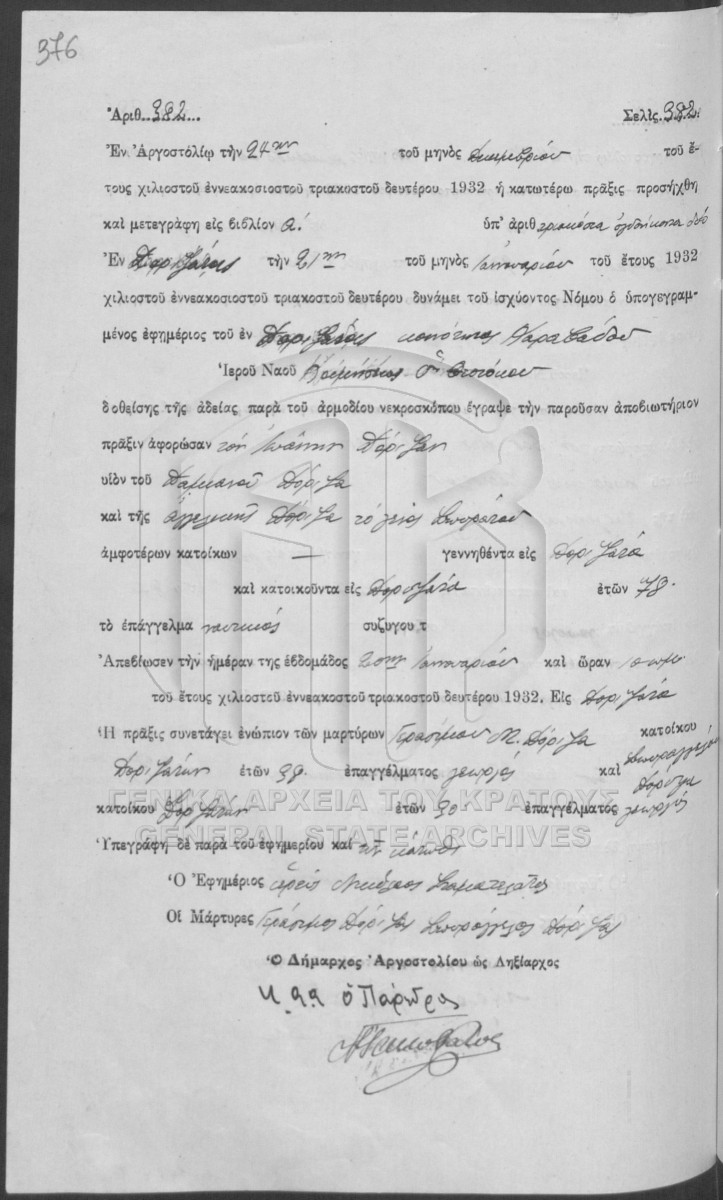 376
Ἀριθ. 382 Σελὶς 382
Ἐν Ἀργοστόλίῳ τὴν 24ην τοῦ μηνὸς Δεκεμβρίου τοῦ ἔ-
τους χιλιοστοῦ ἐννεακοσιοστοῦ τριακοστοῦ δευτέρου 1932 ἡ κατωτέρω πρᾶξις προσήχθη
καὶ μετεγράφη εἰς βιβλίον α΄ ὑπ' ἀριθ τριακόσια ὀγδοήκοντα δύο
Ἐν Δοριζάτοις τὴν 21ην τοῦ μηνὸς Ἰανουαρίου τοῦ ἔτους 1932
χιλιοστοῦ ἐννεακοσιοστοῦ τριακοστοῦ δευτέρου δυνάμει τοῦ ἰσχύοντος Νόμου ὁ ὑπογεγραμ-
μένος ἐφημέριος τοῦ ἐν Δοριζάτοις κοινότητος Καραβάδου
Ἱεροῦ Ναοῦ Κοιμήσεως τῆς Θεοτόκου
δοθείσης τῆς ἀδείας παρὰ τοῦ ἁρμοδίου νεκροσκόπου ἔγραψε τὴν παροῦσαν ἀποβιωτήριον
πρᾶξιν ἀφορῶσαν τὸν Ἰωάννην Δόριζαν
υἱὸν τοῦ Δαμιανοῦ Δόριζα
καὶ τῆς Ἀγγελικῆς Δόριζα τὸ γένος
ἀμφοτέρων κατοίκων — γεννηθέντα εἰς Δοριζάτα
καὶ κατοικοῦντα εἰς Δοριζάτα ἐτῶν 78.
τὸ ἐπάγγελμα ναυτικός συζυγου τ
Ἀπεβίωσεν τὴν ἡμέραν της ἑβδομάδος 20ην Ἰανουαρίου καὶ ὥραν 10 π.μ.
τοῦ ἔτους χιλιοστοῦ ἐννεακοστοῦ τριακοστοῦ δευτέρου 1932. Εἰς Δοριζάτα
Ἡ πρᾶξις συνετάγει ἐνώπιον τῶν μαρτύρων Γερασίμου Μ. Δόριζα κατοίκου
Δοριζάτων ἐτῶν 38. ἐπαγγέλματος γεωργός καὶ Σπυράγγελου Δόριζα
κατοίκου Δοριζάτων ἐτῶν 30 ἐπαγγέλματος γεωργός
ΓΕΝΙΚΑ ΑΡΧΕΙΑ ΤΟΥ ΚΡΑΤΟΥΣ
GENERAL STATE ARCHIVES
Ὑπεγράφη δὲ παρὰ τοῦ ἐφημερίου καὶ τῶν κάτωθι
Ὁ Ἐφημέριος ἱερεὺς Νικόλαος Σταματελάτος
Οἱ Μάρτυρες Γεράσιμος Δόριζας Σπυράγγελος Δόριζας
Ὁ Δήμαρχος Ἀργοστολίου ὡς Ληξίαρχος
ὁ Πάρεδρος